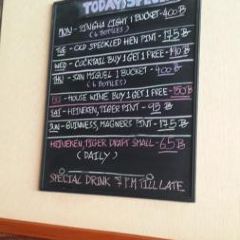 TODAY SPEC
MON - SINGHA LIGHT 1 BUCKET - 400 B
(6 BOTTLES)
TUE - OLD SPECKLED HEN PINT - 175 B
WED - COCKTAIL BUY 1 GET 1 FREE - 190 B
THU - SAN MIGUEL 1 BUCKET - 400 B
(6 BOTTLES)
HOUSE WINE BUY 1 GET 1 FREE - 150 B
SAT - HEINEKEN, TIGER PINT - 95 B
SUN - GUINNESS, MAGNERS PINT - 175 B
HEINEKEN, TIGER DRAFT SMALL - 65 B
(DAILY)
SPECIAL DRINK 7 PM TILL LATE